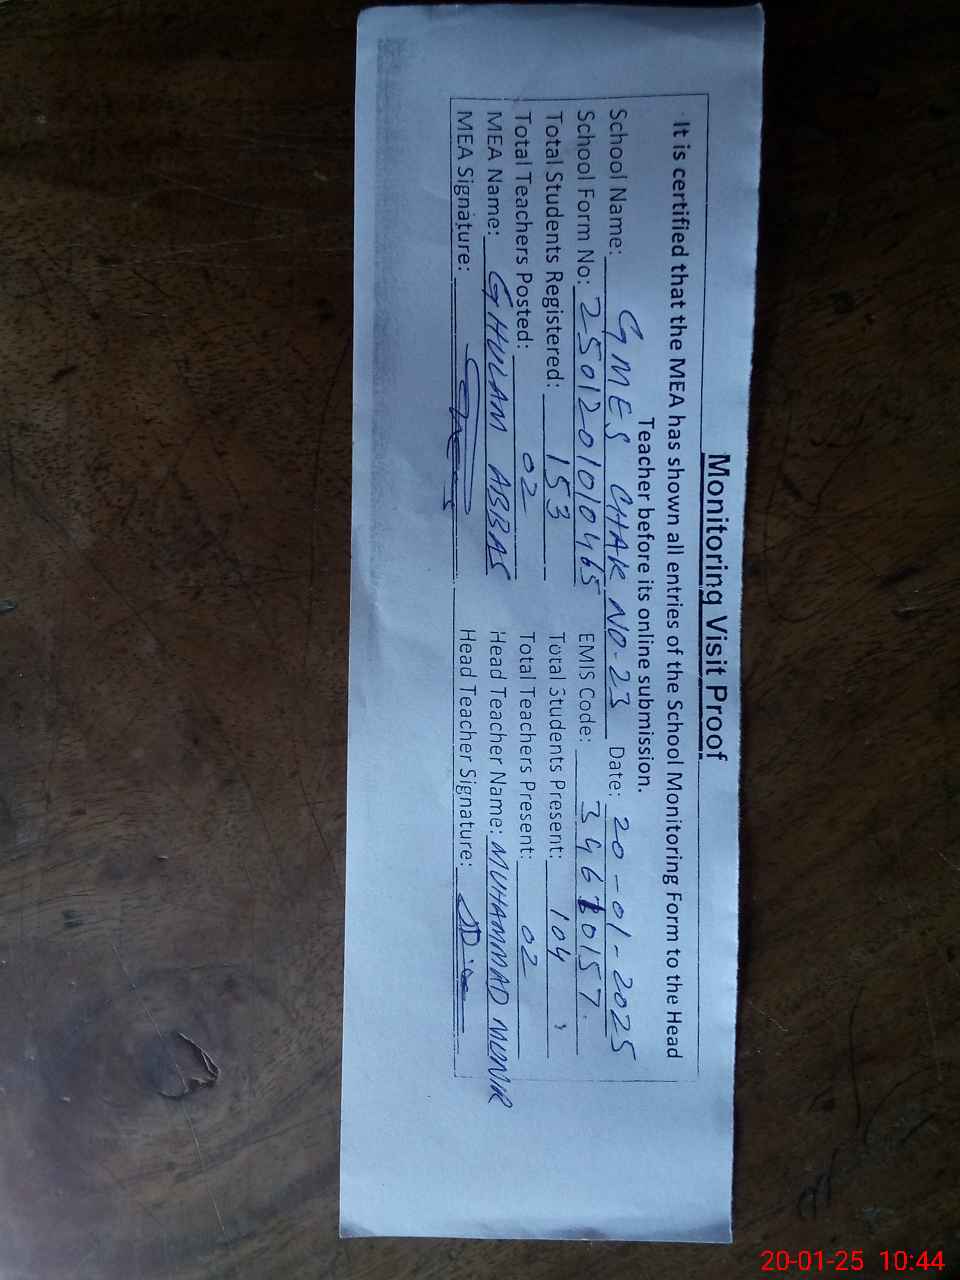 Monitoring Visit Proof
It is certified that the MEA has shown all entries of the School Monitoring Form to the Head
Teacher before its online submission.
School Name: GMES CHAK NO-23 Date: 20-01-2025
School Form No: 2501201010465 EMIS Code:
Total Students Registered: 153 Total Students Present: 104
Total Teachers Posted: 02 Total Teachers Present: 02
MEA Name: GHULAM ABBAS Head Teacher Name: MUHAMMAD MUNIR
MEA Signature: Head Teacher Signature:
20-01-25 10:44